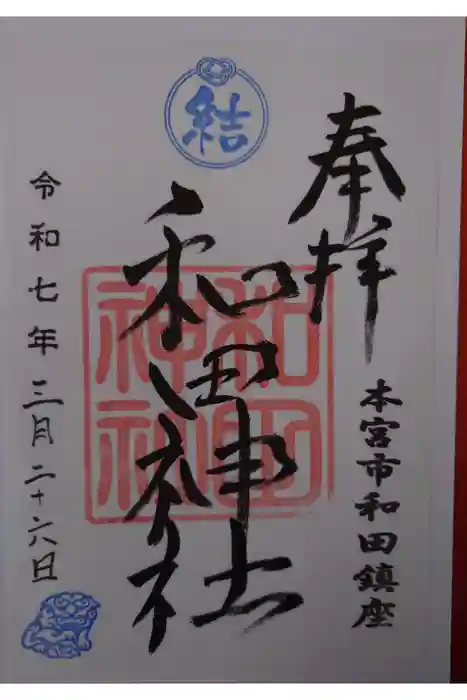 奉拝
本宮市和田鎮座
結
和田神社
和田
神社
令和七年三月二十六日